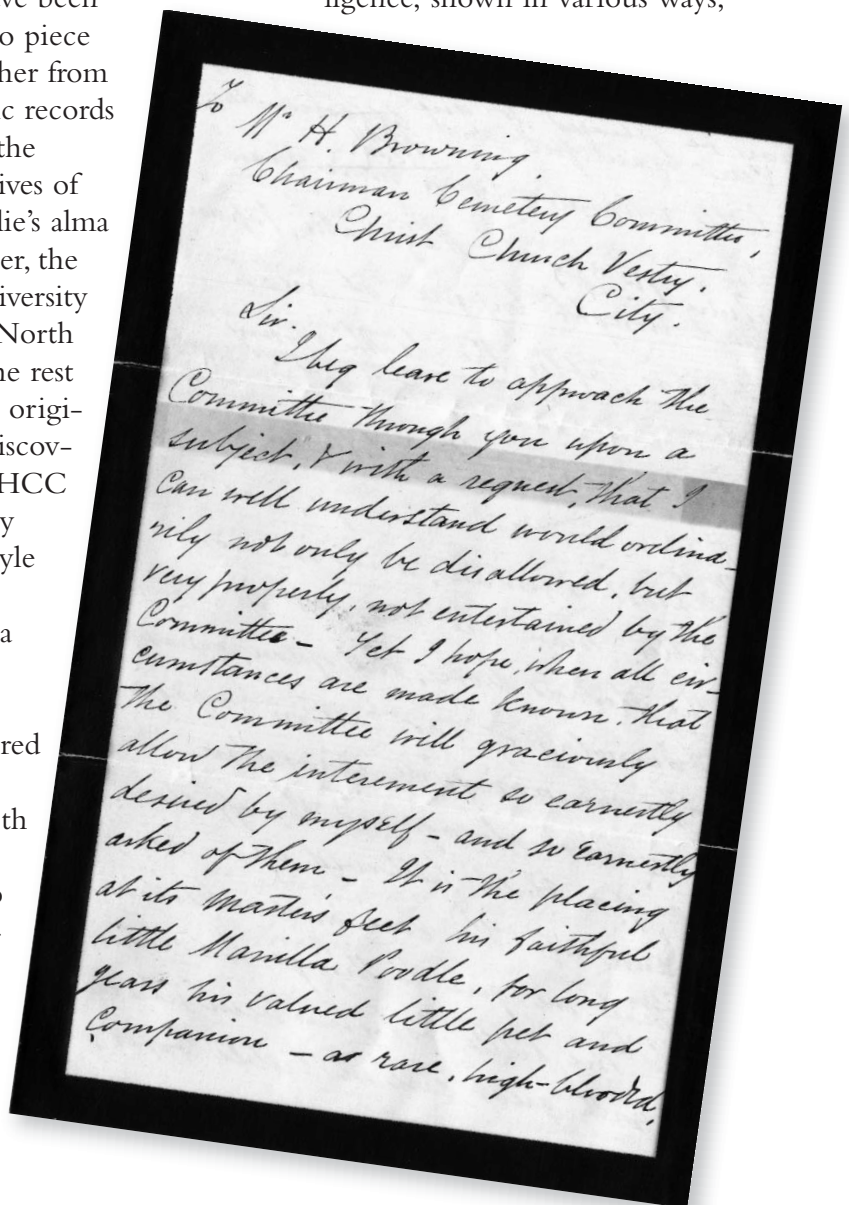 ve been
o piece
her from
c records
the
ives of
lie's alma
er, the
iversity
North
he rest
origi-
iscov-
HCC
y
yle
a
red
th
ligence, shown in various ways,
To Mr H. Browning.
Chairman Cemetery Committee,
Christ Church Vestry.
City.
Sir.
I beg leave to approach the
Committee through you upon a
subject, & with a request, that I
can well understand would ordina-
rily not only be disallowed, but
very properly, not entertained by the
Committee - Yet I hope, when all cir-
cumstances are made known, that
the Committee will graciously
allow the interement so earnestly
desired by myself - and so earnestly
asked of them - It is the placing
at its master's feet his faithful
little Manilla Poodle, for long
years his valued little pet and
Companion - as rare, high-blooded,